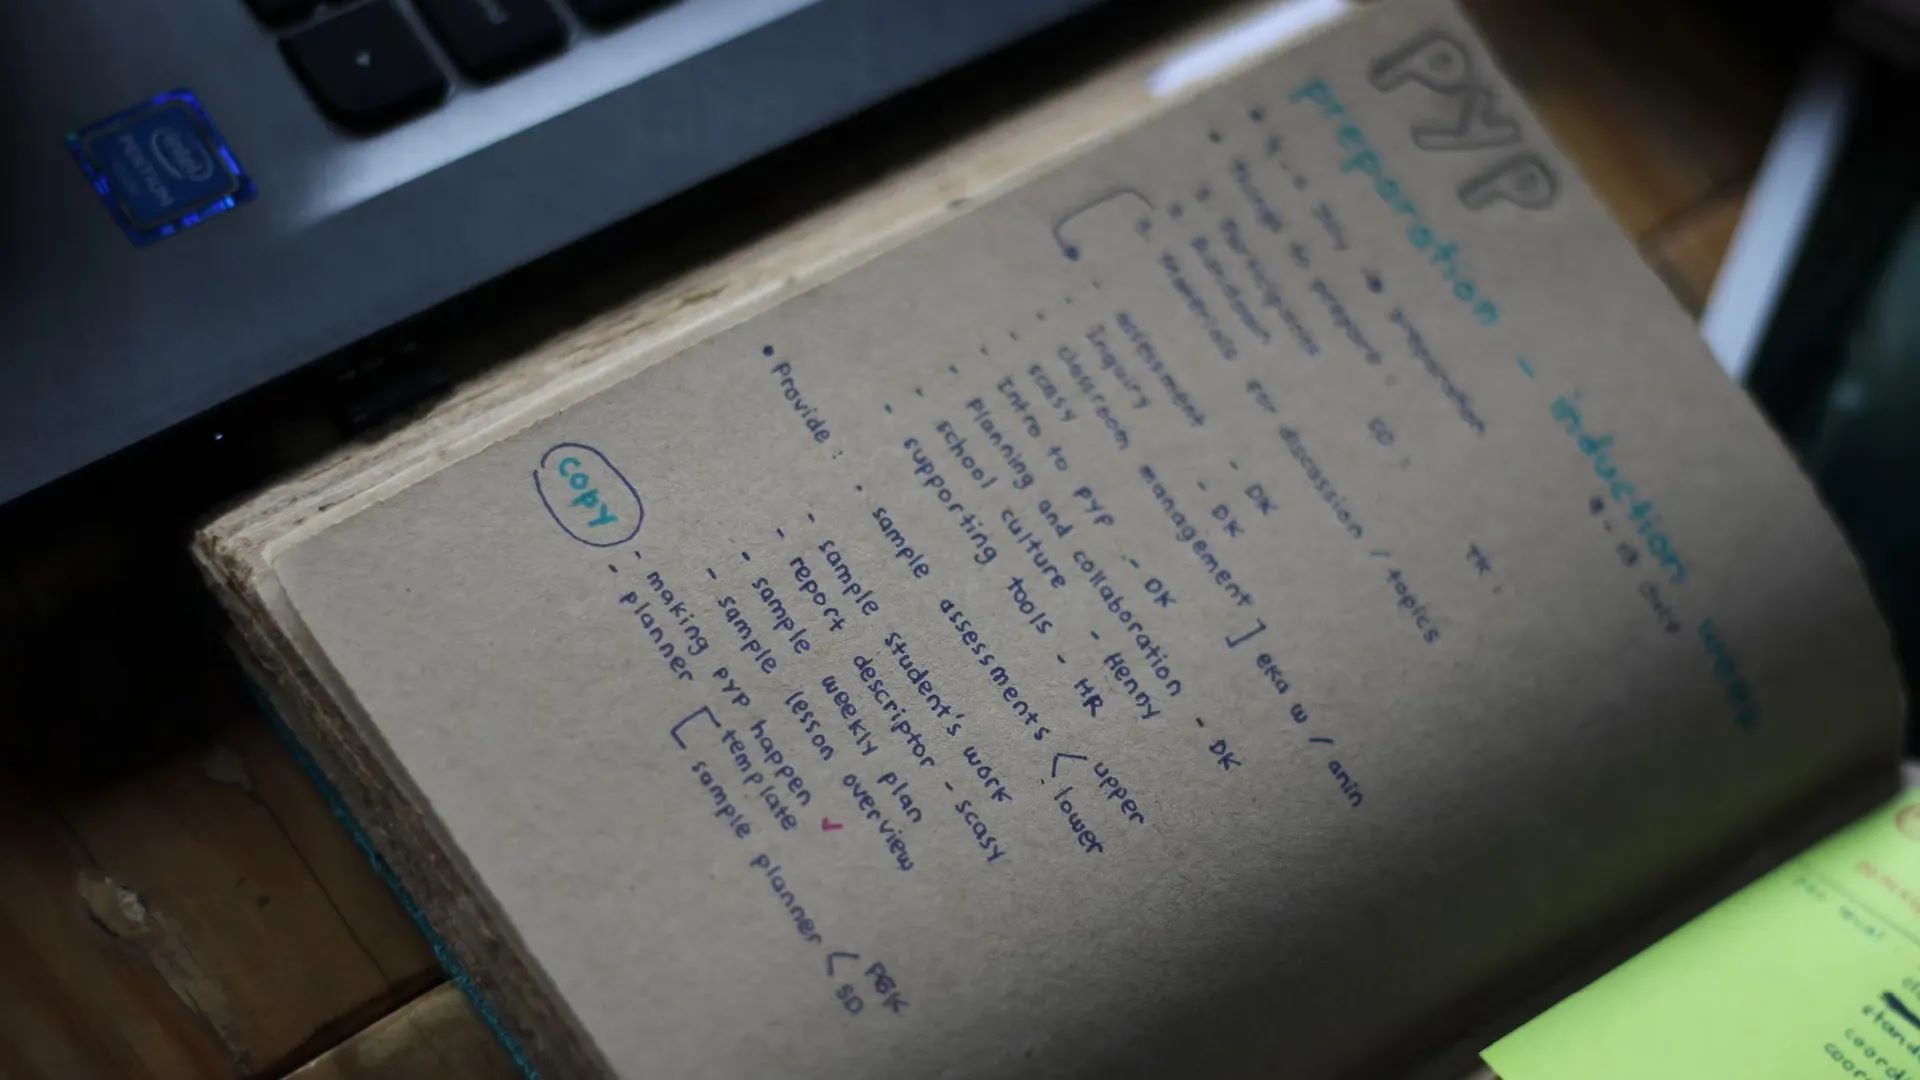 PYP
preparation - induction week
preparation
things to prepare:
SD:
TK:
1. Participants
2. Rundown
3. Materials for discussion / topics
- assessment - DK
- Inquiry - DK
- classroom management ] eka w / anin
- scasy
- Intro to PYP - DK
- planning and collaboration - DK
- school culture - Henny
- supporting tools - HR
• Provide: - sample assessments < upper
lower
- sample student's work
- report descriptor - scasy
- sample weekly plan
- sample lesson overview
copy
- making PYP happen
- planner [ template
sample planner < PGK
SD
intel
PENTIUM